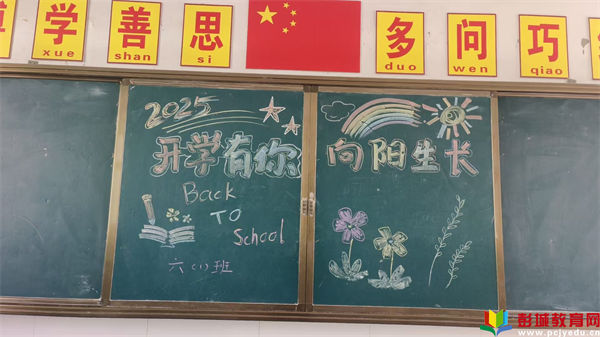 学 善 思 多 问 巧
xue shan si duo wen qiao
2025
开学有你 向阳生长
Back
TO
School
六(1)班
彭城教育网
www.pcjyedu.cn